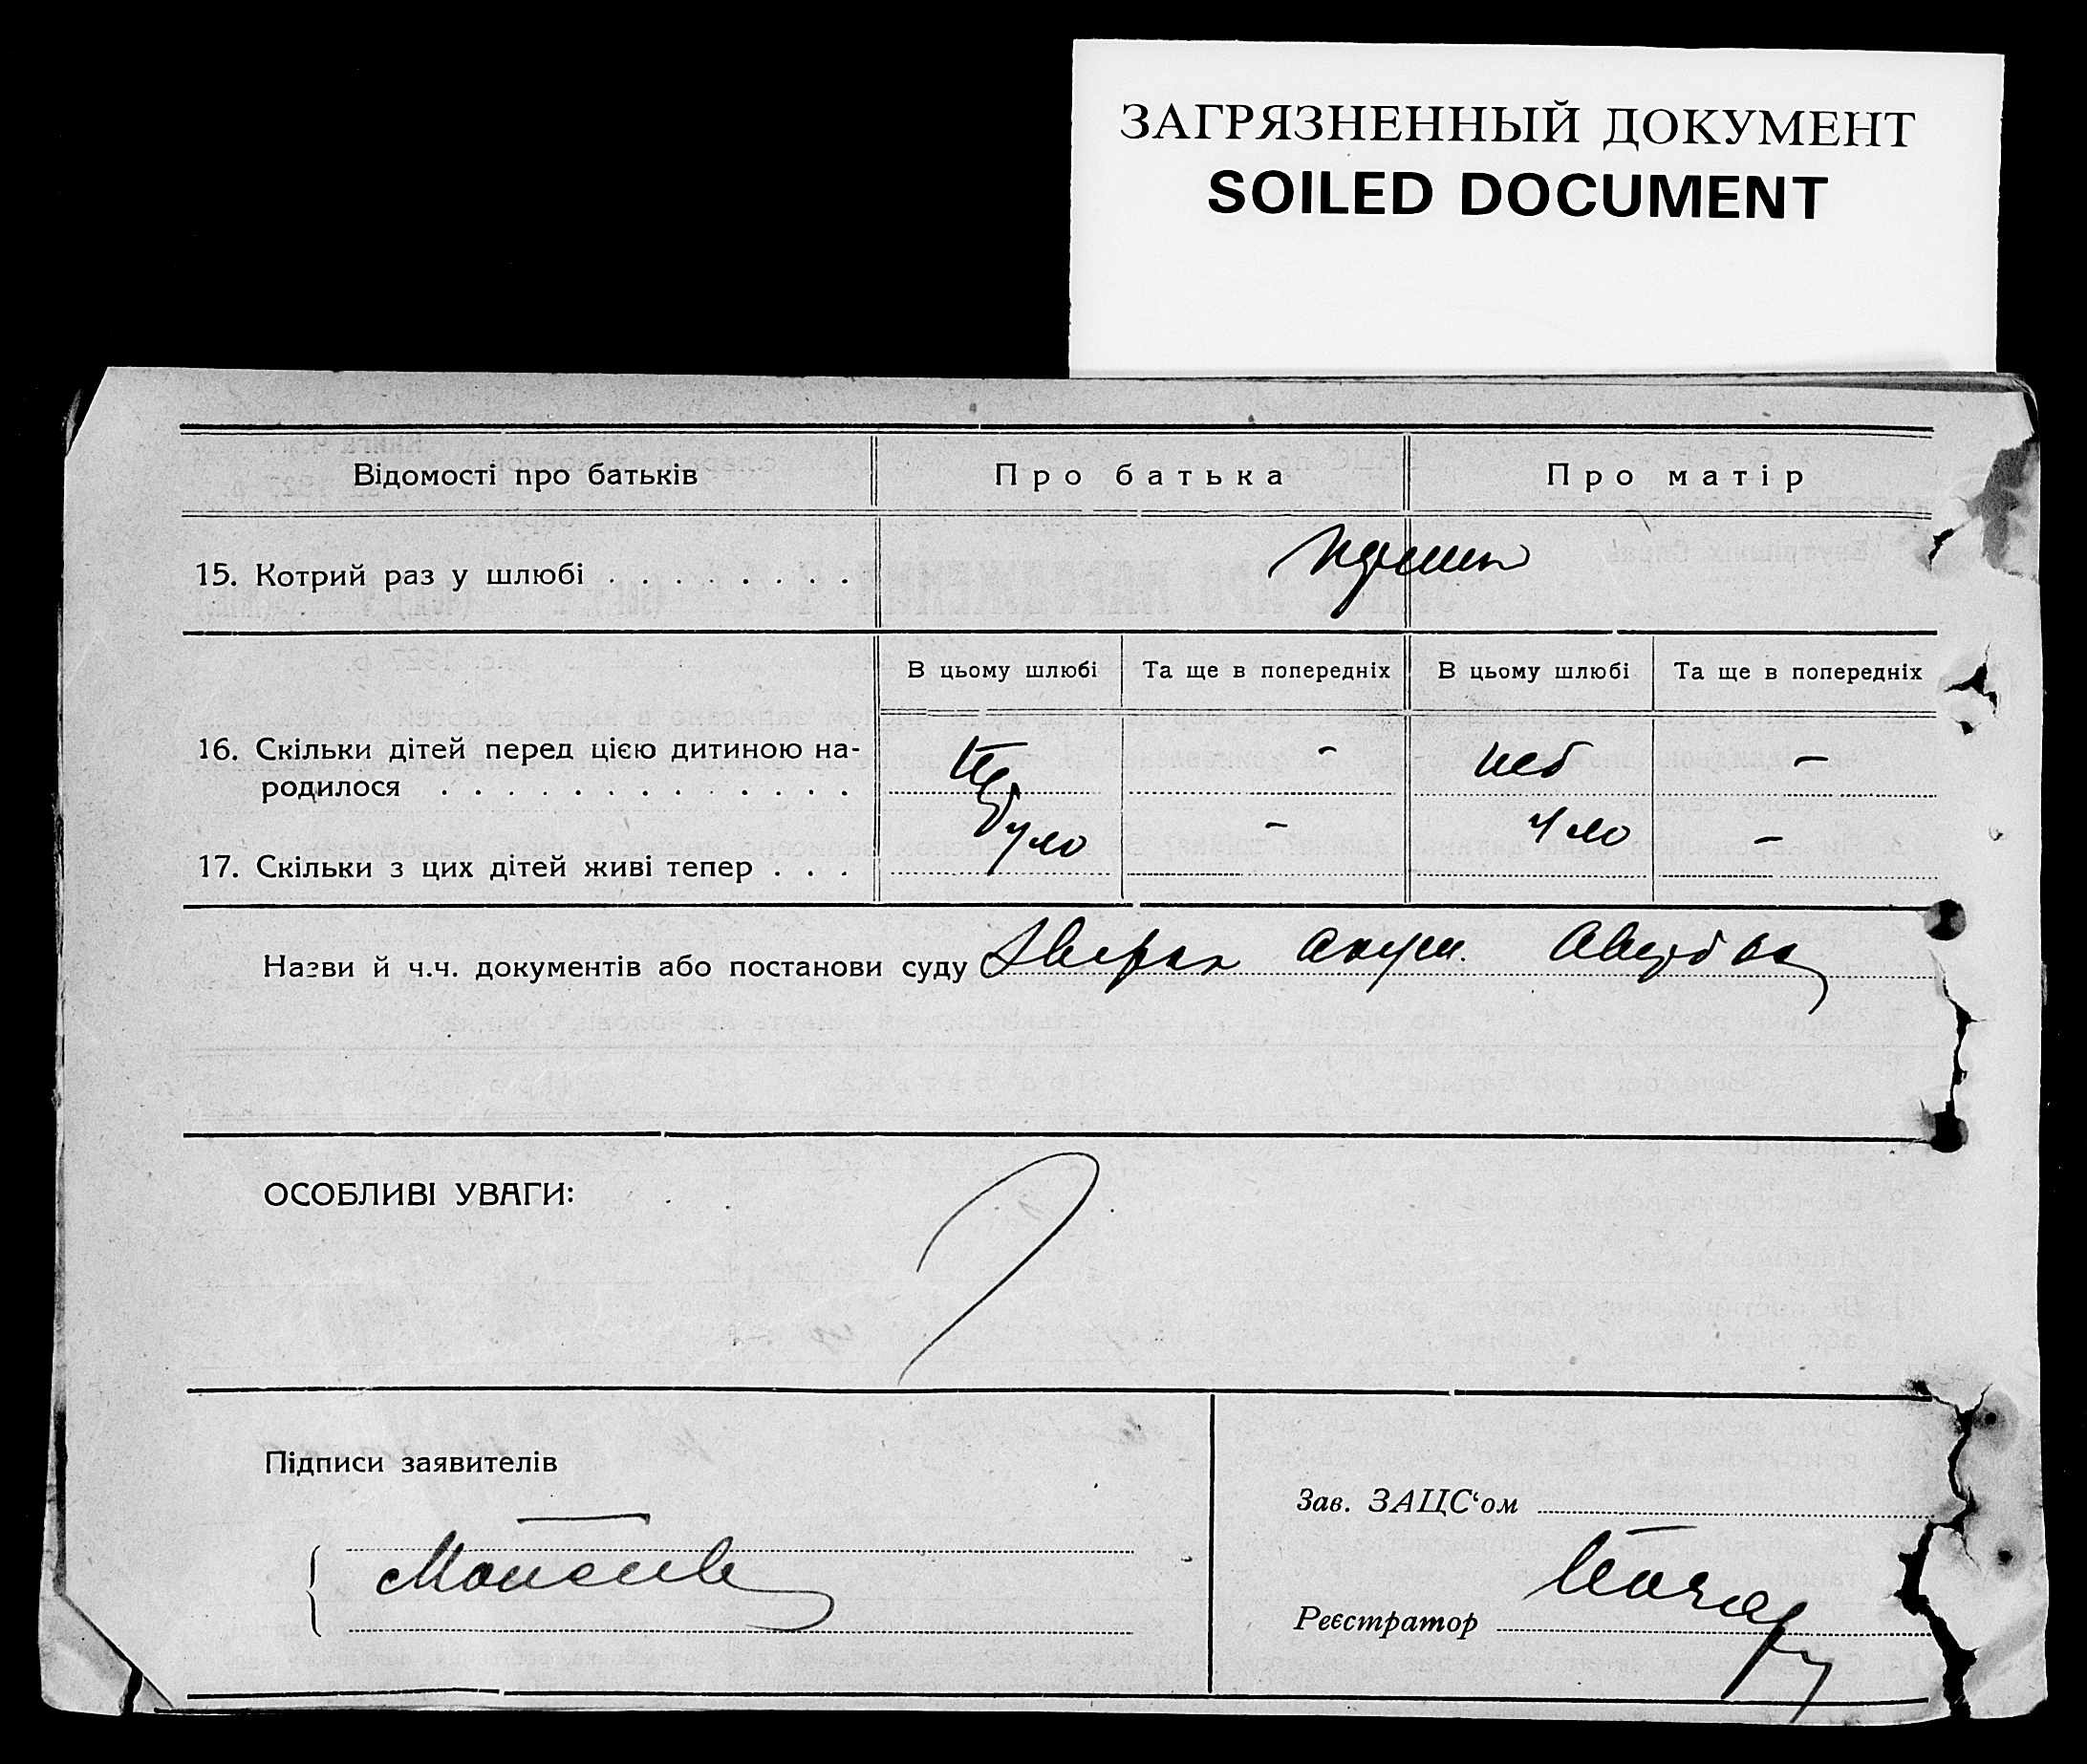 ЗАГРЯЗНЕННЫЙ ДОКУМЕНТ
SOILED DOCUMENT
Відомості про батьків
Про батька
Про матір
15. Котрий раз у шлюбі . . . . . . . .
В цьому шлюбі
Та ще в попередніх
В цьому шлюбі
Та ще в попередніх
16. Скільки дітей перед цією дитиною на-
родилося . . . . . . . . . . . . . .
- -
17. Скільки з цих дітей живі тепер . . .
було - -
Назви й ч.ч. документів або постанови суду
ОСОБЛИВІ УВАГИ:
Підписи заявителів
Зав. ЗАЦС‘ом
Реєстратор